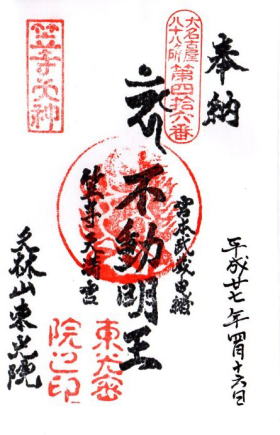 奉納
大名古屋
八十八ヶ所
第四拾六番
平成廿七年四月十六日
宮本武蔵由緒
不動明王
笠寺天満宮
笠寺天神
天林山東光院
東光密
院之印